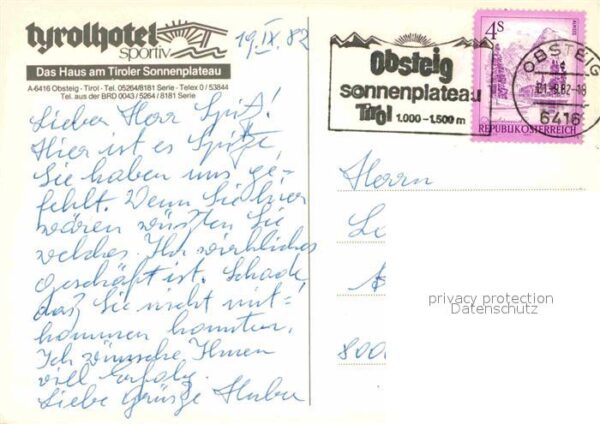 tyrolhotel
sportiv
Das Haus am Tiroler Sonnenplateau
A-6416 Obsteig - Tirol - Tel. 05264/8181 Serie - Telex 0 / 53844
Tel. aus der BRD 0043 / 5264 / 8181 Serie
19.IX.82
Lieber Herr Spitz!
Hier ist es Spitze,
Sie haben uns ge-
fehlt. Wenn Sie hier
wären wüssten Sie
welches Ihr wirkliches
geschäft ist. Schade,
daß Sie nicht mit-
kommen konnten.
Ich wünsche Ihnen
viel Erfolg.
Liebe Grüsse Huber
Obsteig
sonnenplateau
Tirol 1.000-1.500 m
4S
REPUBLIK ÖSTERREICH
OBSTEIG
6416
Herrn
800
privacy protection
Datenschutz